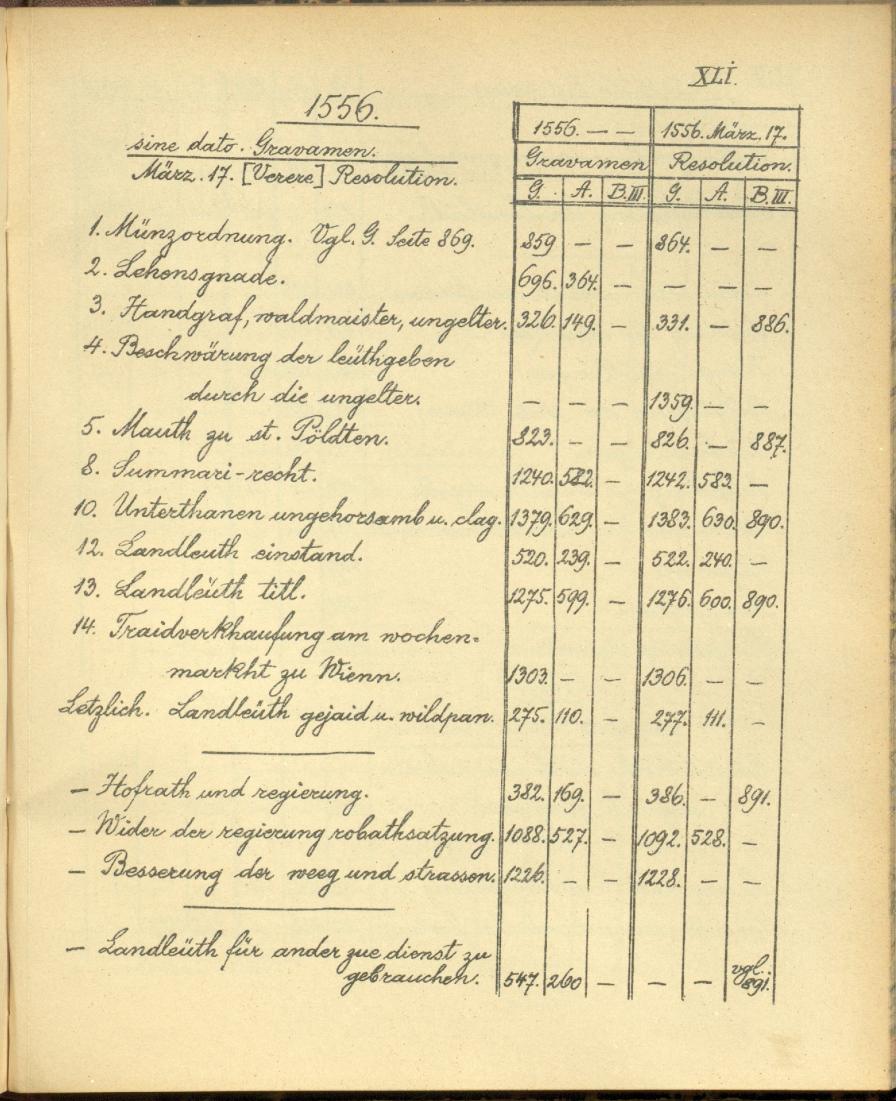 XLI.
1556.
sine dato. Gravamen.
März. 17. [Verere] Resolution.
1556. — — 1556. März. 17.
Gravamen Resolution.
G. A. B.III. G. A. B.III.
1. Münzordnung. Vgl. G. Seite 869. 859 — — 864. — —
2. Lehensgnade. 696. 364. — — — —
3. Handgraf, waldmaister, ungelter. 326. 149. — 331. — 886.
4. Beschwärung der leüthgeben
durch die ungelter. — — — 1359. — —
5. Mauth zu st. Pöldten. 823. — — 826. — 887.
8. Summari-recht. 1240. 582. — 1242. 583. —
10. Unterthanen ungehorsamb u. clag. 1379. 629. — 1383. 630. 890.
12. Landleuth einstand. 520. 239. — 522. 240. —
13. Landleüth titl. 1275. 599. — 1276. 600. 890.
14. Traidverkhaufung am wochen=
markht zu Wienn. 1303. — — 1306. — —
Letzlich. Landleüth gejaid u. wildpan. 275. 110. — 277. 111. —
— Hofrath und regierung. 382. 169. — 386. — 891.
— Wider der regierung robathsatzung. 1088. 527. — 1092. 528. —
— Besserung der weeg und strassen. 1226. — — 1228. — —
— Landleüth für ander zue dienst zu
gebrauchen. 547. 260 — — — vgl. 891.